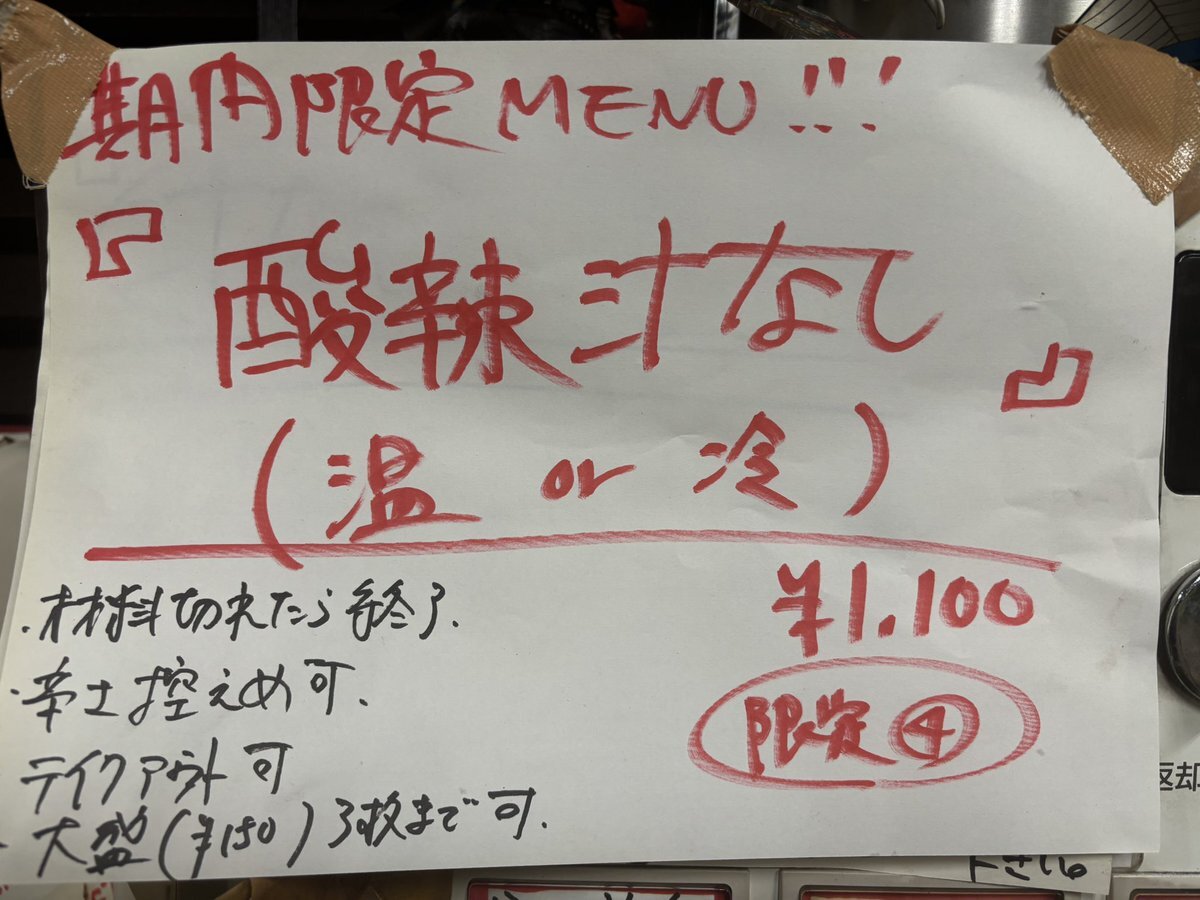 期間限定MENU!!!
『酸辣汁なし
(温 or 冷)』
¥1.100
限定④
・材料切れたら終了.
・辛さ控えめ可.
・テイクアウト可
・大盛(¥150)3枚まで可.
返却